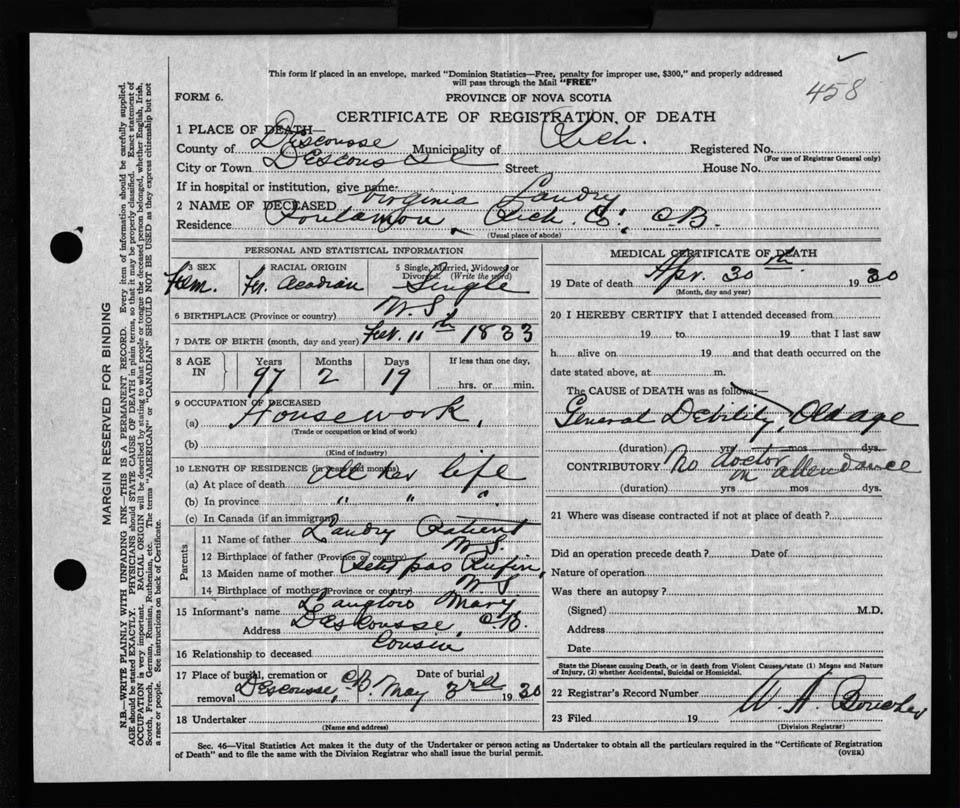 This form if placed in an envelope, marked "Dominion Statistics—Free, penalty for improper use, $300," and properly addressed
will pass through the Mail "FREE"
458
FORM 6.
PROVINCE OF NOVA SCOTIA
CERTIFICATE OF REGISTRATION OF DEATH
1 PLACE OF DEATH—
County of Descousse Municipality of Rich. Registered No.
(For use of Registrar General only)
City or Town Descousse Street House No.
If in hospital or institution, give name
2 NAME OF DECEASED Virginia Landry
Residence Poulamon, Rich. C., C.B.
(Usual place of abode)
PERSONAL AND STATISTICAL INFORMATION
3 SEX Fem. RACIAL ORIGIN Fr. Acadian 5 Single, Married, Widowed or Divorced (Write the word) Single
6 BIRTHPLACE (Province or country) N.S
7 DATE OF BIRTH (month, day and year) Feb. 11th 1833
8 AGE IN Years 97 Months 2 Days 19 If less than one day, hrs. or min.
9 OCCUPATION OF DECEASED
(a) Housework,
(Trade or occupation or kind of work)
(b)
(Kind of industry)
10 LENGTH OF RESIDENCE (in years and months)
(a) At place of death All her life
(b) In province " " "
(c) In Canada (if an immigrant)
Parents
11 Name of father Landry Patient
12 Birthplace of father (Province or country) N.S.
13 Maiden name of mother Petitpas Rufine,
14 Birthplace of mother (Province or country) N.S
15 Informant's name Langlois Mary
Address Descousse, C.B.
16 Relationship to deceased Cousin
17 Place of burial, cremation or removal Descousse, C.B. Date of burial May 3rd 1930
18 Undertaker
(Name and address)
MEDICAL CERTIFICATE OF DEATH
19 Date of death Apr. 30th 1930
(Month, day and year)
20 I HEREBY CERTIFY that I attended deceased from
19 to 19 that I last saw
h alive on 19 and that death occurred on the
date stated above, at m.
The CAUSE of DEATH was as follows:—
General Debility, Old age
(duration) yrs mos dys.
CONTRIBUTORY No doctor in attendance
(duration) yrs mos dys.
21 Where was disease contracted if not at place of death?
Did an operation precede death? Date of
Nature of operation
Was there an autopsy?
(Signed) M.D.
Address
Date
State the Disease causing Death, or in death from Violent Causes, state (1) Means and Nature
of Injury, (2) whether Accidental, Suicidal or Homicidal.
22 Registrar's Record Number
23 Filed 19 W. A. Boucher
(Division Registrar)
Sec. 46—Vital Statistics Act makes it the duty of the Undertaker or person acting as Undertaker to obtain all the particulars required in the "Certificate of Registration
of Death" and to file the same with the Division Registrar who shall issue the burial permit.
(OVER)
MARGIN RESERVED FOR BINDING
N.B.—WRITE PLAINLY WITH UNFADING INK—THIS IS A PERMANENT RECORD. Every item of information should be carefully supplied.
AGE should be stated EXACTLY. PHYSICIANS should STATE CAUSE OF DEATH in plain terms, so that it may be properly classified. Exact statement of
OCCUPATION is very important. RACIAL ORIGIN will be described by stating to what people or tongue the deceased person belonged, whether English, Irish,
Scotch, French, German, Russian, Ruthenian, etc. The terms "AMERICAN" or "CANADIAN" SHOULD NOT BE USED as they express citizenship but not
a race or people. See instructions on back of Certificate.